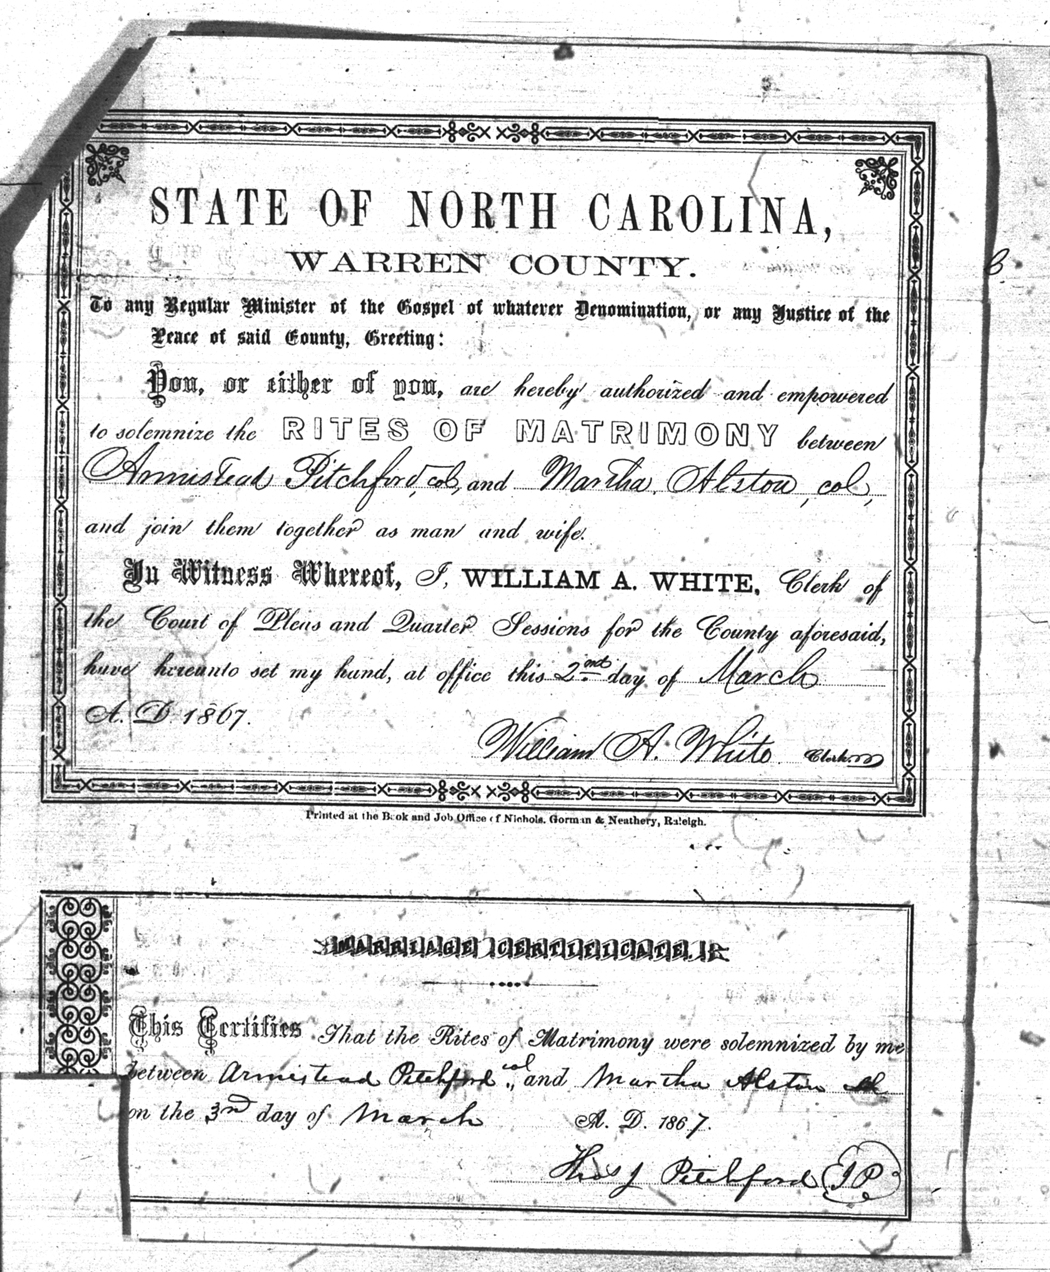 STATE OF NORTH CAROLINA,
WARREN COUNTY.
To any Regular Minister of the Gospel of whatever Denomination, or any Justice of the
Peace of said County, Greeting:
You, or either of you, are hereby authorized and empowered
to solemnize the RITES OF MATRIMONY between
Armistead Pitchford, col, and Martha Alston, col,
and join them together as man and wife.
In Witness Whereof, I, WILLIAM A. WHITE, Clerk of
the Court of Pleas and Quarter Sessions for the County aforesaid,
have hereunto set my hand, at office this 2nd day of March
A. D 1867.
William A. White Clerk
Printed at the Book and Job Office of Nichols, Gorman & Neathery, Raleigh.
MARRIAGE CERTIFICATE.
This Certifies That the Rites of Matrimony were solemnized by me
between Armistead Pitchford col., and Martha Alston col
on the 3rd day of March A. D. 1867.
Thos J Pitchford JP